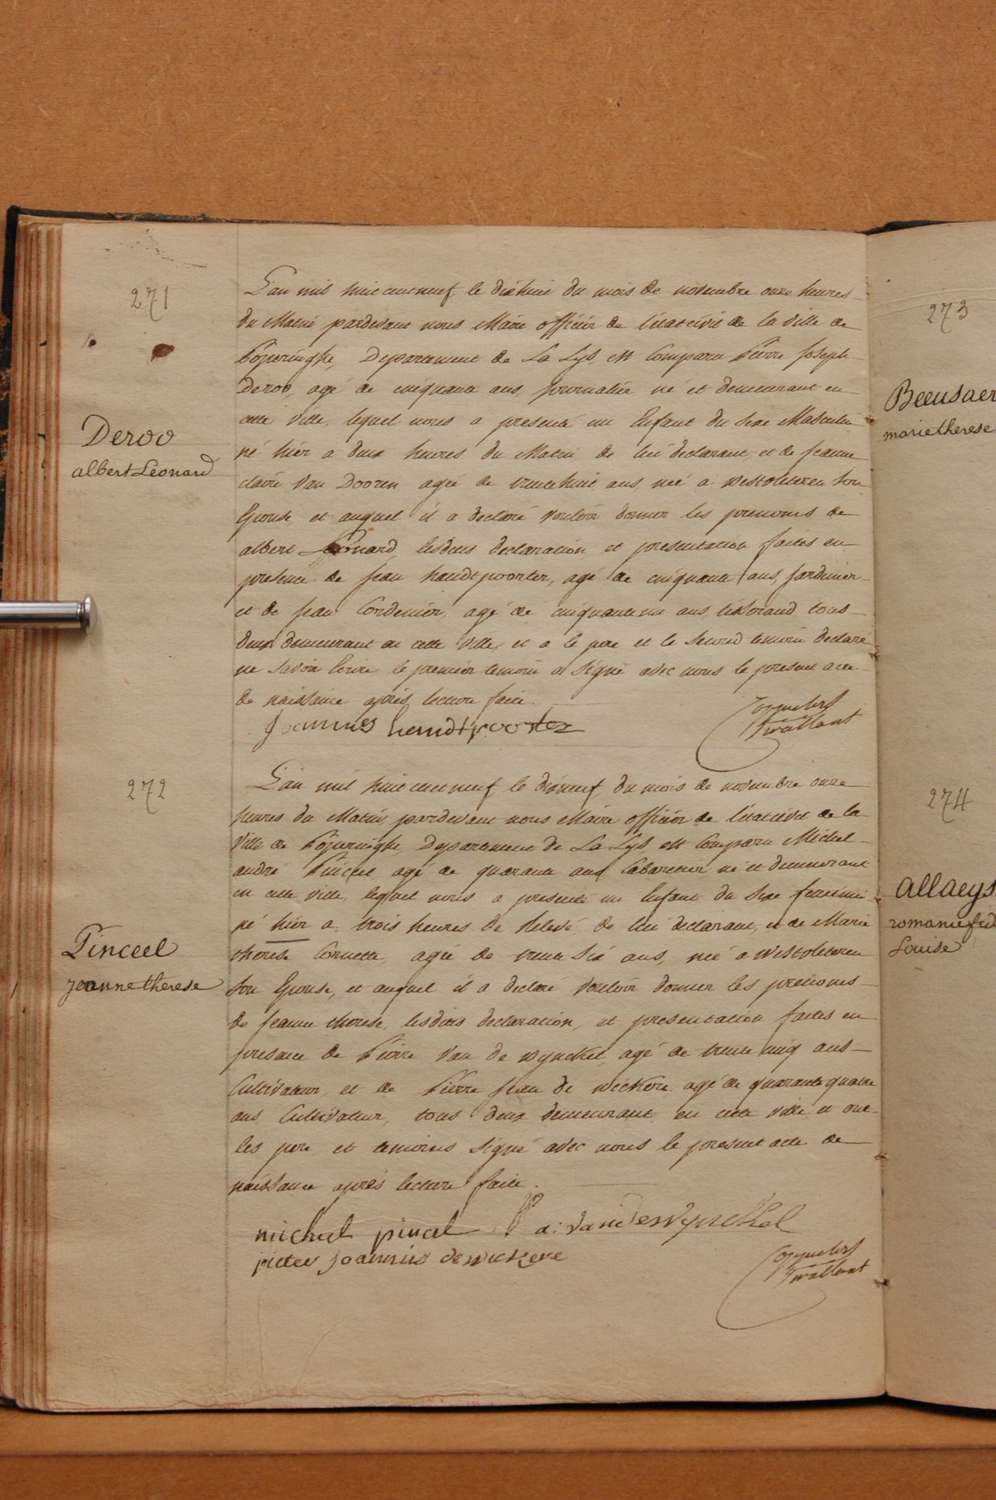 271
Deroo
albert Léonard
L'an mil huit cent neuf le dixhuit du mois de novembre onze heures
du Matin pardevant nous Maire officier de l'état civil de la ville de
Poperinghe, Departement de La Lys est Comparu Pierre Joseph
Deroo, agé de cinquante ans, Journalier né et demeurant en
cette ville, lequel nous a presenté un Enfant du Sexe Masculin
né hier a deux heures du Matin de lui declarant et de jeanne
claire Van Dooren agée de trentehuit ans née a westvleteren Son
Epouse et auquel il a declaré Vouloir donner les prenoms de
albert Léonard, lesdites declaration et presentation faites en
presence de jean handtpoorter, agé de cinquante ans, Jardinier
et de jean Cordenier, agé de cinquante un ans tisserand tous
deux demeurant en cette ville, et a le pere et le Second temoin declaré
ne Savoir Ecrire le premier temoin a Signé avec nous le present acte
de naissance après lecture faite.
Joannes handtpoorter
272
Pinceel
jeanne therese
L'an mil huit cent neuf le dixneuf du mois de novembre onze
heures du Matin pardevant nous Maire officier de l'état civil de la
Ville de Poperinghe Departement de La Lys est Comparu Michel
andre Pinceel agé de quarante ans Cabaretier né et demeurant
en cette ville, lequel nous a presenté un Enfant du Sexe feminin
né hier a trois heures de Relevé, de lui declarant, et de Marie
therese Cornette, agée de trente Six ans, née a Westvleteren
Son Epouse, et auquel il a declaré Vouloir donner les prenoms
de jeanne therese, lesdites declaration, et presentation faites en
presence de Pierre Van de wynckel, agé de trente cinq ans
Cultivateur, et de Pierre jean de wickere, agé de quarante quatre
ans Cultivateur, tous deux demeurant en cette ville et ont
les pere et temoins Signé avec nous le present acte de
naissance après lecture faite.
michiel pincel P a: vandewynckel
pieter joannis dewickere
273
Beeusaer
marie therese
274
allaeys
Louise